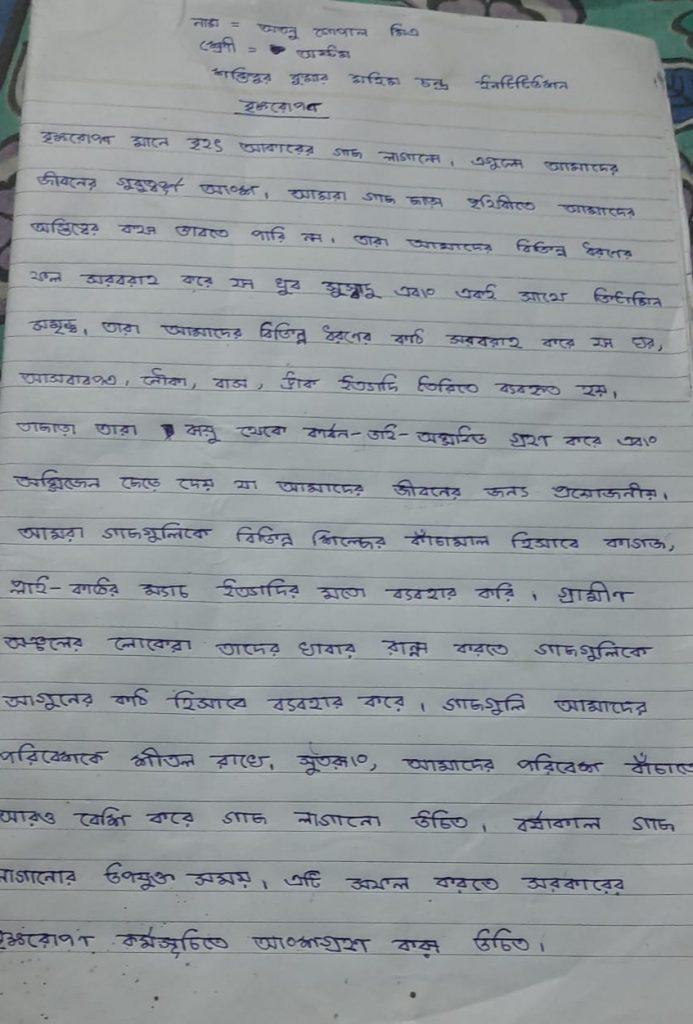 নাম = গোপাল মিত্র
শ্রেণী = অষ্টম
কুমার চন্দ্র ইনস্টিটিউশন
বৃক্ষরোপণ
বৃক্ষরোপণ মানে বৃহৎ আকারের গাছ লাগানো। এগুলো আমাদের
জীবনের গুরুত্বপূর্ণ অংশ। আমরা গাছ ছাড়া পৃথিবীতে আমাদের
অস্তিত্বের কথা ভাবতে পারি না। তারা আমাদের বিভিন্ন ধরনের
ফল সরবরাহ করে যা খুব সুস্বাদু এবং একই সাথে ভিটামিন
সমৃদ্ধ। তারা আমাদের বিভিন্ন ধরনের কাঠ সরবরাহ করে যা ঘর,
আসবাবপত্র, নৌকা, বাস, ট্রাক ইত্যাদি তৈরিতে ব্যবহৃত হয়।
তাছাড়া তারা বায়ু থেকে কার্বন-ডাই-অক্সাইড গ্রহণ করে এবং
অক্সিজেন ছেড়ে দেয় যা আমাদের জীবনের জন্য প্রয়োজনীয়।
আমরা গাছগুলিকে বিভিন্ন শিল্পের কাঁচামাল হিসাবে কাগজ,
প্লাই-কাঠের ম্যাচ ইত্যাদির মতো ব্যবহার করি। গ্রামীণ
অঞ্চলের লোকেরা তাদের খাবার রান্না করতে গাছগুলিকে
আগুনের কাঠ হিসাবে ব্যবহার করে। গাছগুলি আমাদের
পরিবেশকে শীতল রাখে। সুতরাং, আমাদের পরিবেশ বাঁচাতে
আরও বেশি করে গাছ লাগানো উচিত। বর্ষাকাল গাছ
লাগানোর উপযুক্ত সময়। এটি সফল করতে সরকারের
বৃক্ষরোপণ কর্মসূচিতে অংশগ্রহণ করা উচিত।